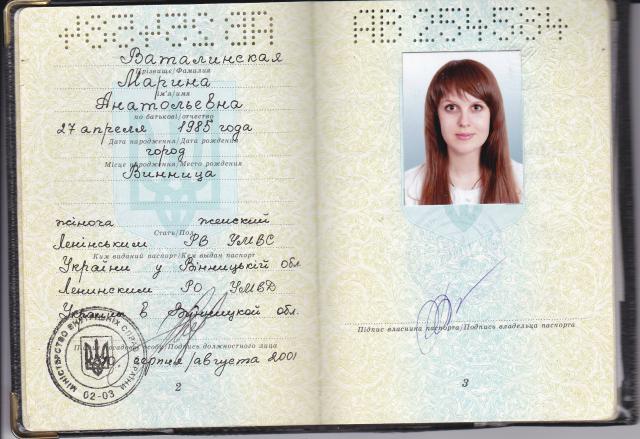 Ваталинская
Прізвище/Фамилия
Марина
Ім'я/имя
Анатольевна
по батькові/отчество
27 апреля 1985 года
Дата народження/Дата рождения
город
Місце народження/Место рождения
Винница
жіноча женский
Стать/Пол
Ленінським РВ УМВС
Ким виданий паспорт/Кем выдан паспорт
України у Вінницькій обл.
Ленинским РО УМВД
Украины в Винницкой обл.
особи/Подпись должностного лица
серпня/августа 2001
МІНІСТЕРСТВО ВНУТРІШНІХ СПРАВ УКРАЇНИ
02-03
2
АВ 254534
Підпис власника паспорта/Подпись владельца паспорта
3